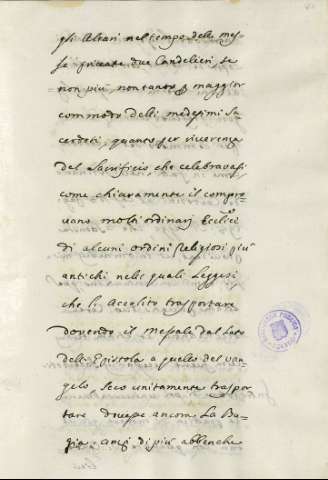 gli Altari nel tempo delle mes-
se private due Candelieri, se
non più, non tanto p maggior
commodo delli medesimi Sa-
cerdoti, quanto per riverenza
del Sacrificio che celebravasi
come chiaramente il compro-
vano molti ordinarj Eccl.ci
di alcuni ordini Religiosi più
antichi nelli quali Leggesi
che l'Accolito trasportare
dovendo il Messale dal Lato
dell'Epistola a quello del van-
gelo, seco unitamente traspor-
tare dovesse ancora La Bu-
gia. anzi di più abbenche